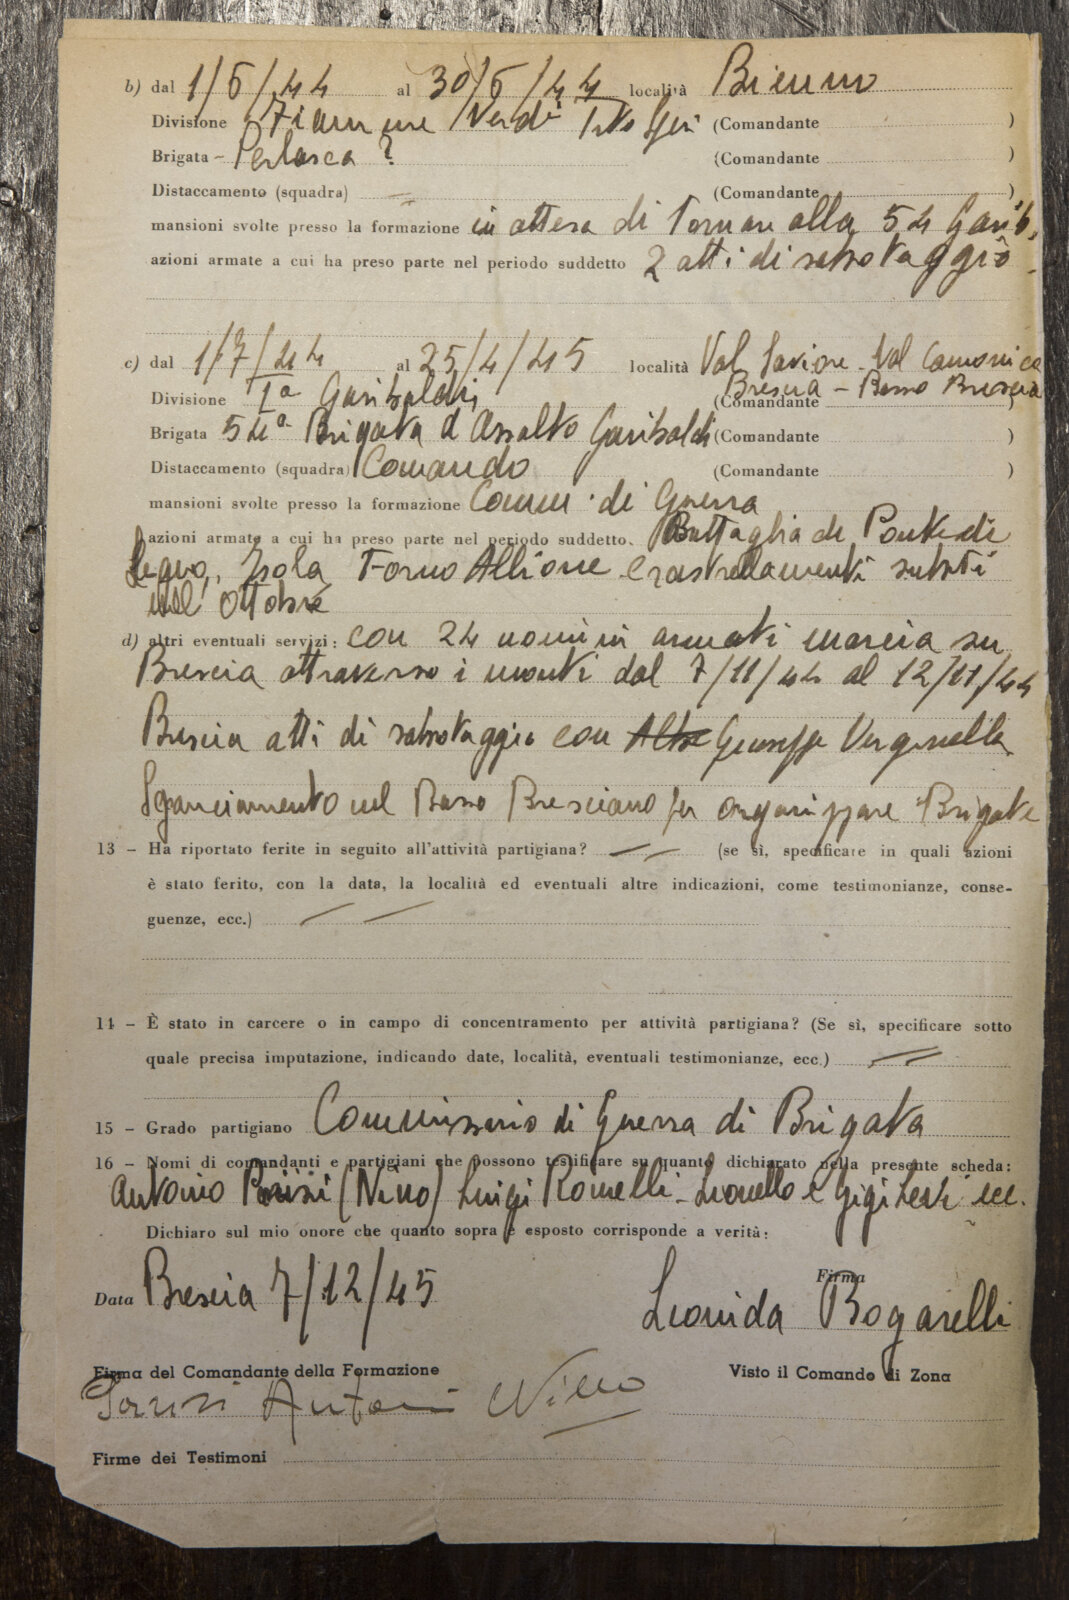 b) dal 1/6/44 al 30/6/44 località Bienno
Divisione Fiamme Verdi Tito Speri (Comandante )
Brigata - Perlasca ? (Comandante )
Distaccamento (squadra) (Comandante )
mansioni svolte presso la formazione in attesa di tornare alla 54 Garib.
azioni armate a cui ha preso parte nel periodo suddetto 2 atti di sabotaggio
c) dal 1/7/44 al 25/4/45 località Val Saviore - Val Camonica
Brescia - Basso Bresciano
Divisione Iª Garibaldi (Comandante )
Brigata 54ª Brigata d'Assalto Garibaldi (Comandante )
Distaccamento (squadra) Comando (Comandante )
mansioni svolte presso la formazione Comm. di Guerra
azioni armate a cui ha preso parte nel periodo suddetto. Battaglia di Ponte di
Legno, Isola Forno Allione e rastrellamenti subiti
nell'ottobre
d) altri eventuali servizi: con 24 uomini armati marcia su
Brescia attraverso i monti dal 7/11/44 al 12/11/44
Brescia atti di sabotaggio con Giuseppe Verginella
Sganciamento nel Basso Bresciano per organizzare Brigate
13 - Ha riportato ferite in seguito all'attività partigiana? (se sì, specificare in quali azioni
è stato ferito, con la data, la località ed eventuali altre indicazioni, come testimonianze, conse-
guenze, ecc.)
14 - È stato in carcere o in campo di concentramento per attività partigiana? (Se sì, specificare sotto
quale precisa imputazione, indicando date, località, eventuali testimonianze, ecc.)
15 - Grado partigiano Commissario di Guerra di Brigata
16 - Nomi di comandanti e partigiani che possono testificare su quanto dichiarato nella presente scheda:
Antonio Parisi (Nino) Luigi Romelli - Leonello e Gigi ecc.
Dichiaro sul mio onore che quanto sopra è esposto corrisponde a verità:
Data Brescia 7/12/45
Firma
Leonida Bogarelli
Firma del Comandante della Formazione Visto il Comando di Zona
Parisi Antonio Nino
Firme dei Testimoni